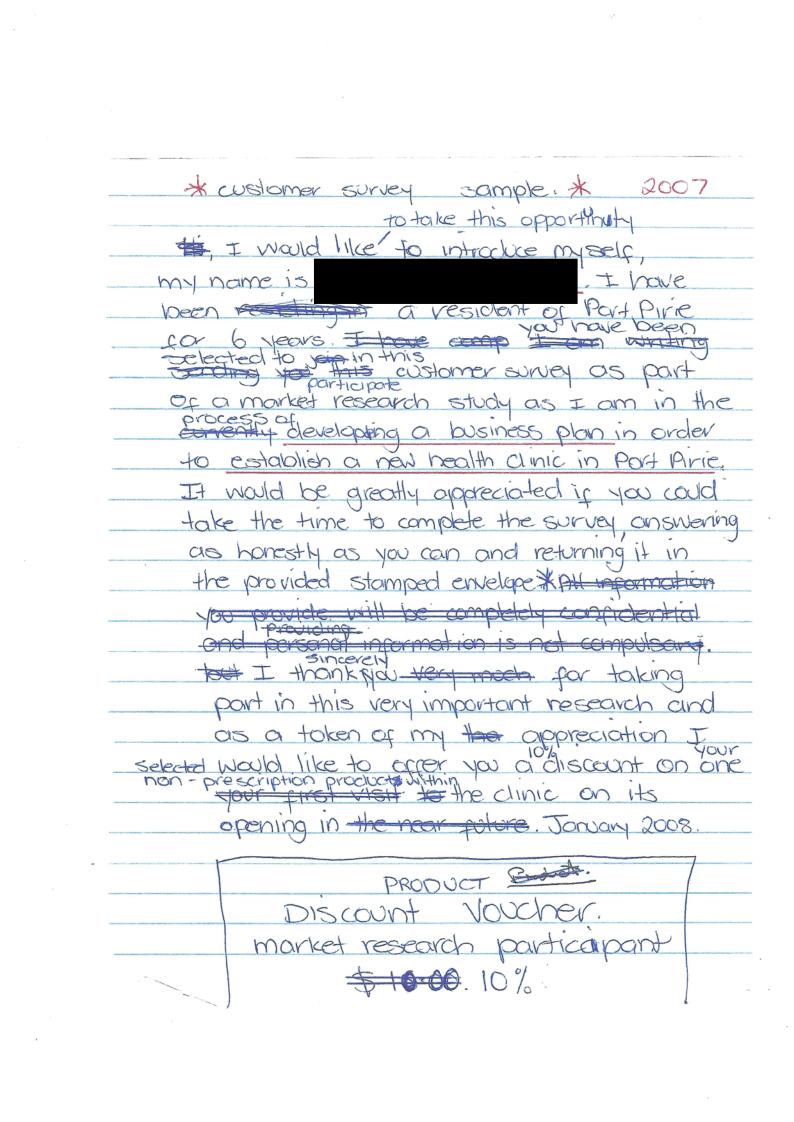 * customer survey sample. * 2007
to take this opportunity
I would like to introduce myself,
my name is . I have
been researching in a resident of Port Pirie
you have been
for 6 years. I have comp I am writing
selected to join in this
sending you this customer survey as part
participate
of a market research study as I am in the
process of
currently developing a business plan in order
to establish a new health clinic in Port Pirie.
It would be greatly appreciated if you could
take the time to complete the survey, answering
as honestly as you can and returning it in
the provided stamped envelope * All information
you provide will be completely confidential
providing
and personal information is not compulsary.
sincerely
but I thank you very much for taking
part in this very important research and
as a token of my the appreciation I
10% your
selected would like to offer you a discount on one
non-prescription products within
your first visit to the clinic on its
opening in the near future. January 2008.
PRODUCT
Discount Voucher.
market research participant
$10.00. 10%